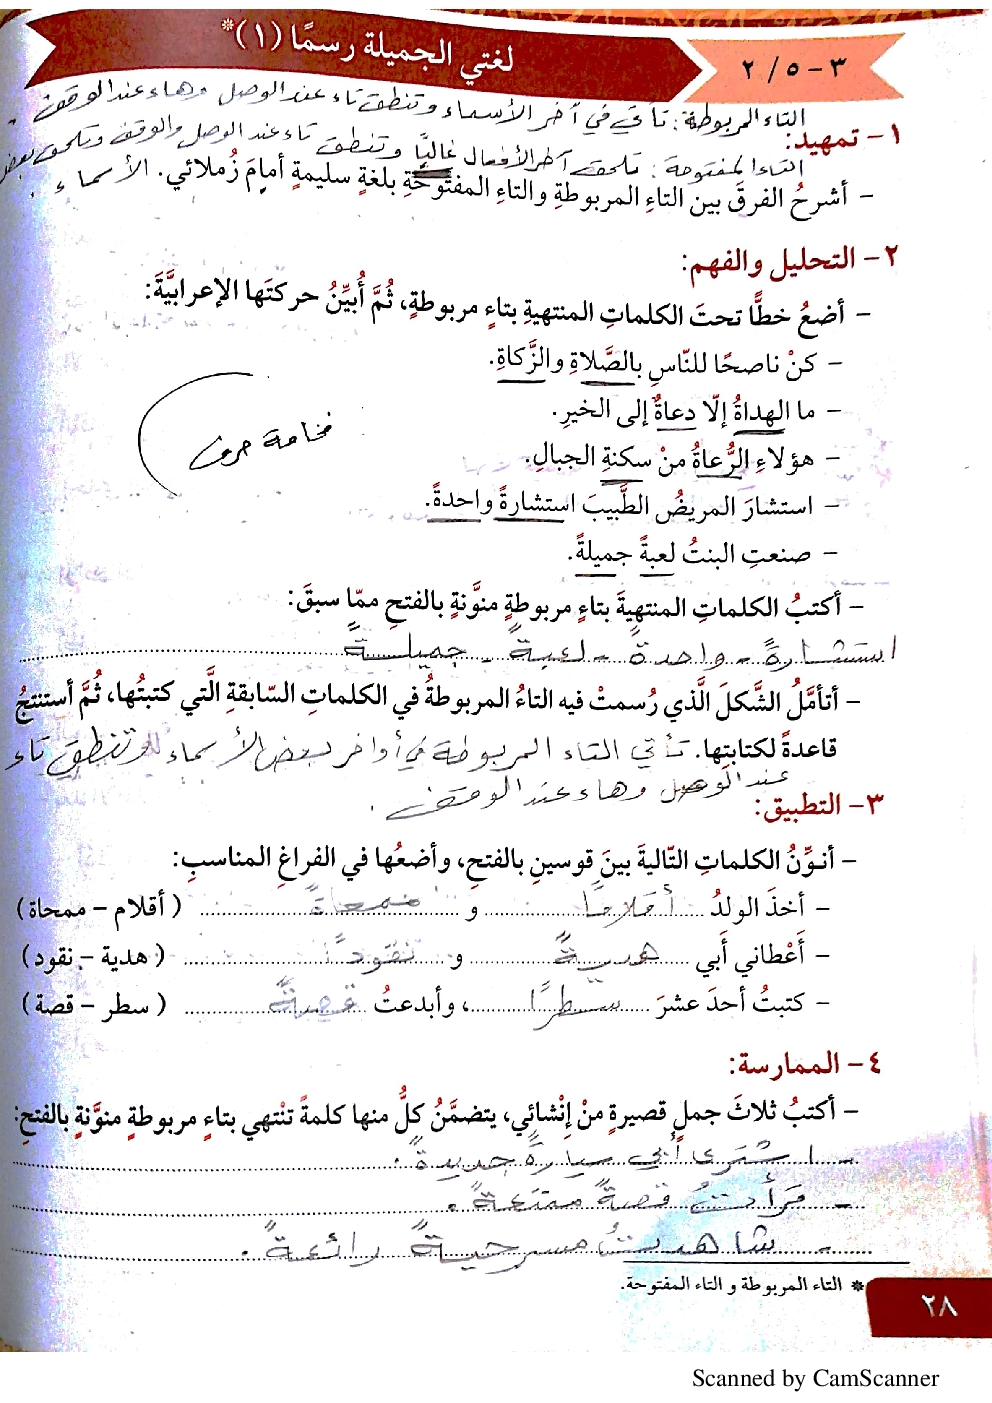 لغتي الجميلة رسمًا (١)*
٣-٥ / ٢
التاء المربوطة: تأتي في آخر الأسماء وتنطق تاء عند الوصل وهاء عند الوقف.
١- تمهيد:
التاء المفتوحة: تلحق آخر الأفعال غالبًا وتنطق تاء عند الوصل والوقف وتلحق بعض
الأسماء.
- أشرحُ الفرقَ بين التاءِ المربوطةِ والتاءِ المفتوحةِ بلغةٍ سليمةٍ أمامَ زُملائي.
٢- التحليل والفهم:
- أضعُ خطًّا تحتَ الكلماتِ المنتهيةِ بتاءٍ مربوطةٍ، ثُمَّ أُبيِّنُ حركتَها الإعرابيَّةَ:
- كنْ ناصحًا للنّاسِ بالصَّلاةِ والزَّكاةِ.
- ما الهداةُ إلّا دعاةٌ إلى الخيرِ.
فخامة حرف
- هؤلاءِ الرُّعاةُ منْ سكنةِ الجبالِ.
- استشارَ المريضُ الطَّبيبَ استشارةً واحدةً.
- صنعتِ البنتُ لعبةً جميلةً.
- أكتبُ الكلماتِ المنتهيةَ بتاءٍ مربوطةٍ منوَّنةٍ بالفتحِ ممّا سبقَ:
استشارةً - واحدةً - لعبةً - جميلةً
- أتأمَّلُ الشَّكلَ الَّذي رُسمتْ فيه التاءُ المربوطةُ في الكلماتِ السّابقةِ الَّتي كتبتُها، ثُمَّ أستنتجُ
قاعدةً لكتابتِها. تأتي التاء المربوطة في أواخر بعض الأسماء وتنطق تاء
عند الوصل وهاء عند الوقف.
٣- التطبيق:
- أنوِّنُ الكلماتِ التّاليةَ بينَ قوسينِ بالفتحِ، وأضعُها في الفراغِ المناسبِ:
- أخذَ الولدُ أقلامًا و ممحاةً (أقلام - ممحاة)
- أعْطاني أبي هديةً و نقودًا (هدية - نقود)
- كتبتُ أحدَ عشرَ سطرًا، وأبدعتُ قصةً (سطر - قصة)
٤- الممارسة:
- أكتبُ ثلاثَ جملٍ قصيرةٍ منْ إنْشائي، يتضمَّنُ كلُّ منها كلمةً تنْتهي بتاءٍ مربوطةٍ منوَّنةٍ بالفتحِ:
- اشترى أبي سيارةً جديدةً.
- قرأتُ قصةً ممتعةً.
- شاهدتُ مسرحيةً رائعةً.
* التاء المربوطة و التاء المفتوحة.
٢٨
Scanned by CamScanner